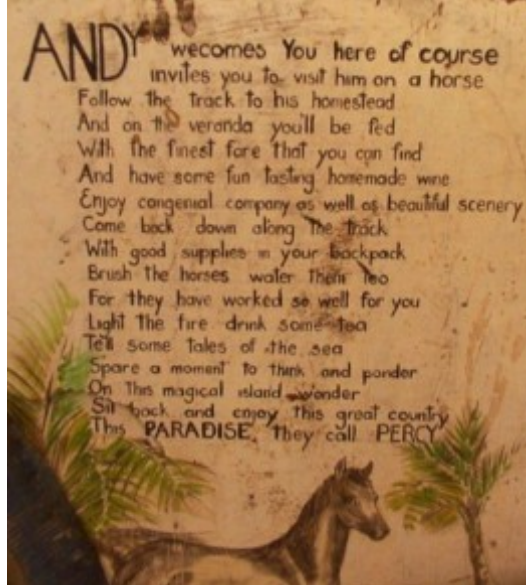 ANDY wecomes You here of course
invites you to visit him on a horse
Follow the track to his homestead
And on the veranda you'll be fed
With the finest fare that you can find
And have some fun tasting homemade wine
Enjoy congenial company as well as beautiful scenery
Come back down along the track
With good supplies in your backpack
Brush the horses water them too
For they have worked so well for you
Light the fire drink some tea
Tell some tales of the sea
Spare a moment to think and ponder
On this magical island wonder
Sit back and enjoy this great country
This PARADISE, they call PERCY